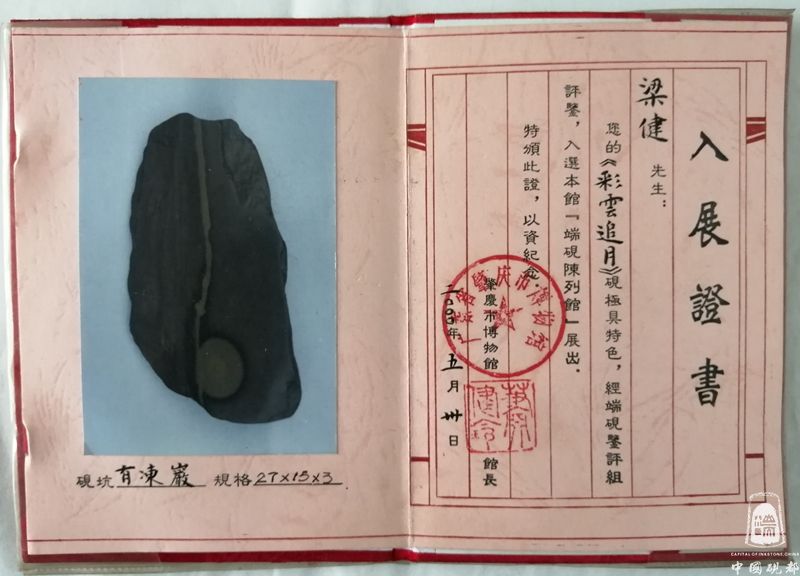 入展證書
梁健 先生：
您的《彩雲追月》硯極具特色，經端硯鑒評組
評鑒，入選本館「端硯陳列館」展出．
特頒此證，以資紀念．
肇慶市博物館 館長
年五月卅日
硯坑 有凍巖 規格 27×15×3
CAPITAL OF INKSTONE, CHINA
中國硯都